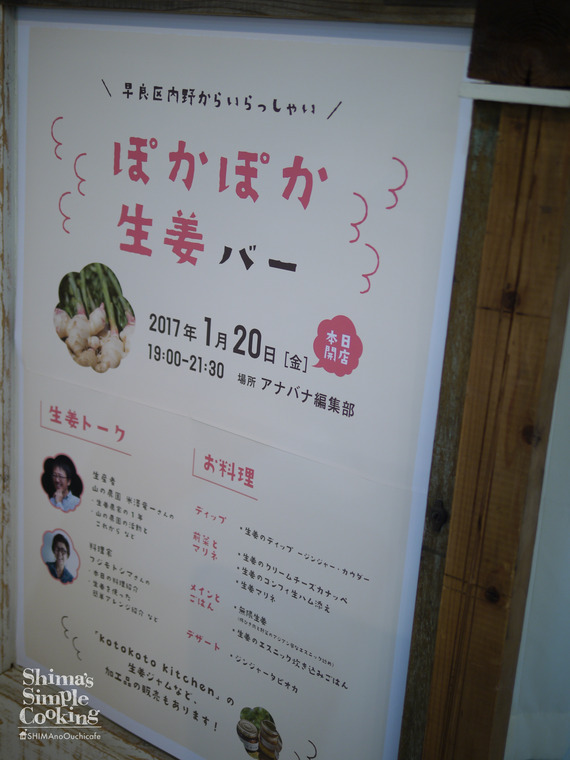 早良区内野からいらっしゃい
ぽかぽか
生姜バー
2017年1月20日[金]
19:00-21:30
場所 アナバナ編集部
本日
開店
生姜トーク
生産者
山の農園 米澤竜一さんの
・生姜農家の1年
・山の農園の活動と
これから など
料理家
フジモトシマさんの
・今夜の料理紹介
・生姜を使った
簡単アレンジ紹介 など
お料理
ディップ
・生姜のディップ -ジンジャー・カウダー
前菜と
マリネ
・生姜のクリームチーズカナッペ
・生姜のコンフィ生ハム添え
・生姜マリネ
メインと
ごはん
・無限生姜
・生姜のエスニック炊き込みごはん
デザート
・ジンジャータピオカ
「kotokoto kitchen」の
生姜ジャムなど、
加工品の販売もあります！
Shima's
Simple
Cooking
SHIMAnoOuchicafe